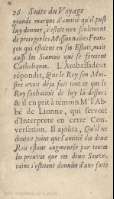 26 Suite du Voyage
grande marque d'amitié qu'il pust
luy donner, c'estoit non seulement
de proteger les Missionaires Fran-
çois qui estoient en ses Estats, mais
aussi les Siamois qui se feroient
Catholiques. L'Ambassadeur
répondit, Que le Roy son Mais-
tre avoit déja fait tout ce que le
Roy souhaitoit de luy là dessus:
& il en prit à témoin M. l'Ab-
bé de Lionne, qui servoit
d'Interprete en cette Con-
versation. Il ajoûta, Qu'il ne
doutoit point que l'amitié du
Roy n'eust augmentée par toutes
les preuves que ces deux Souve-
rains s'estoient données d'une forte